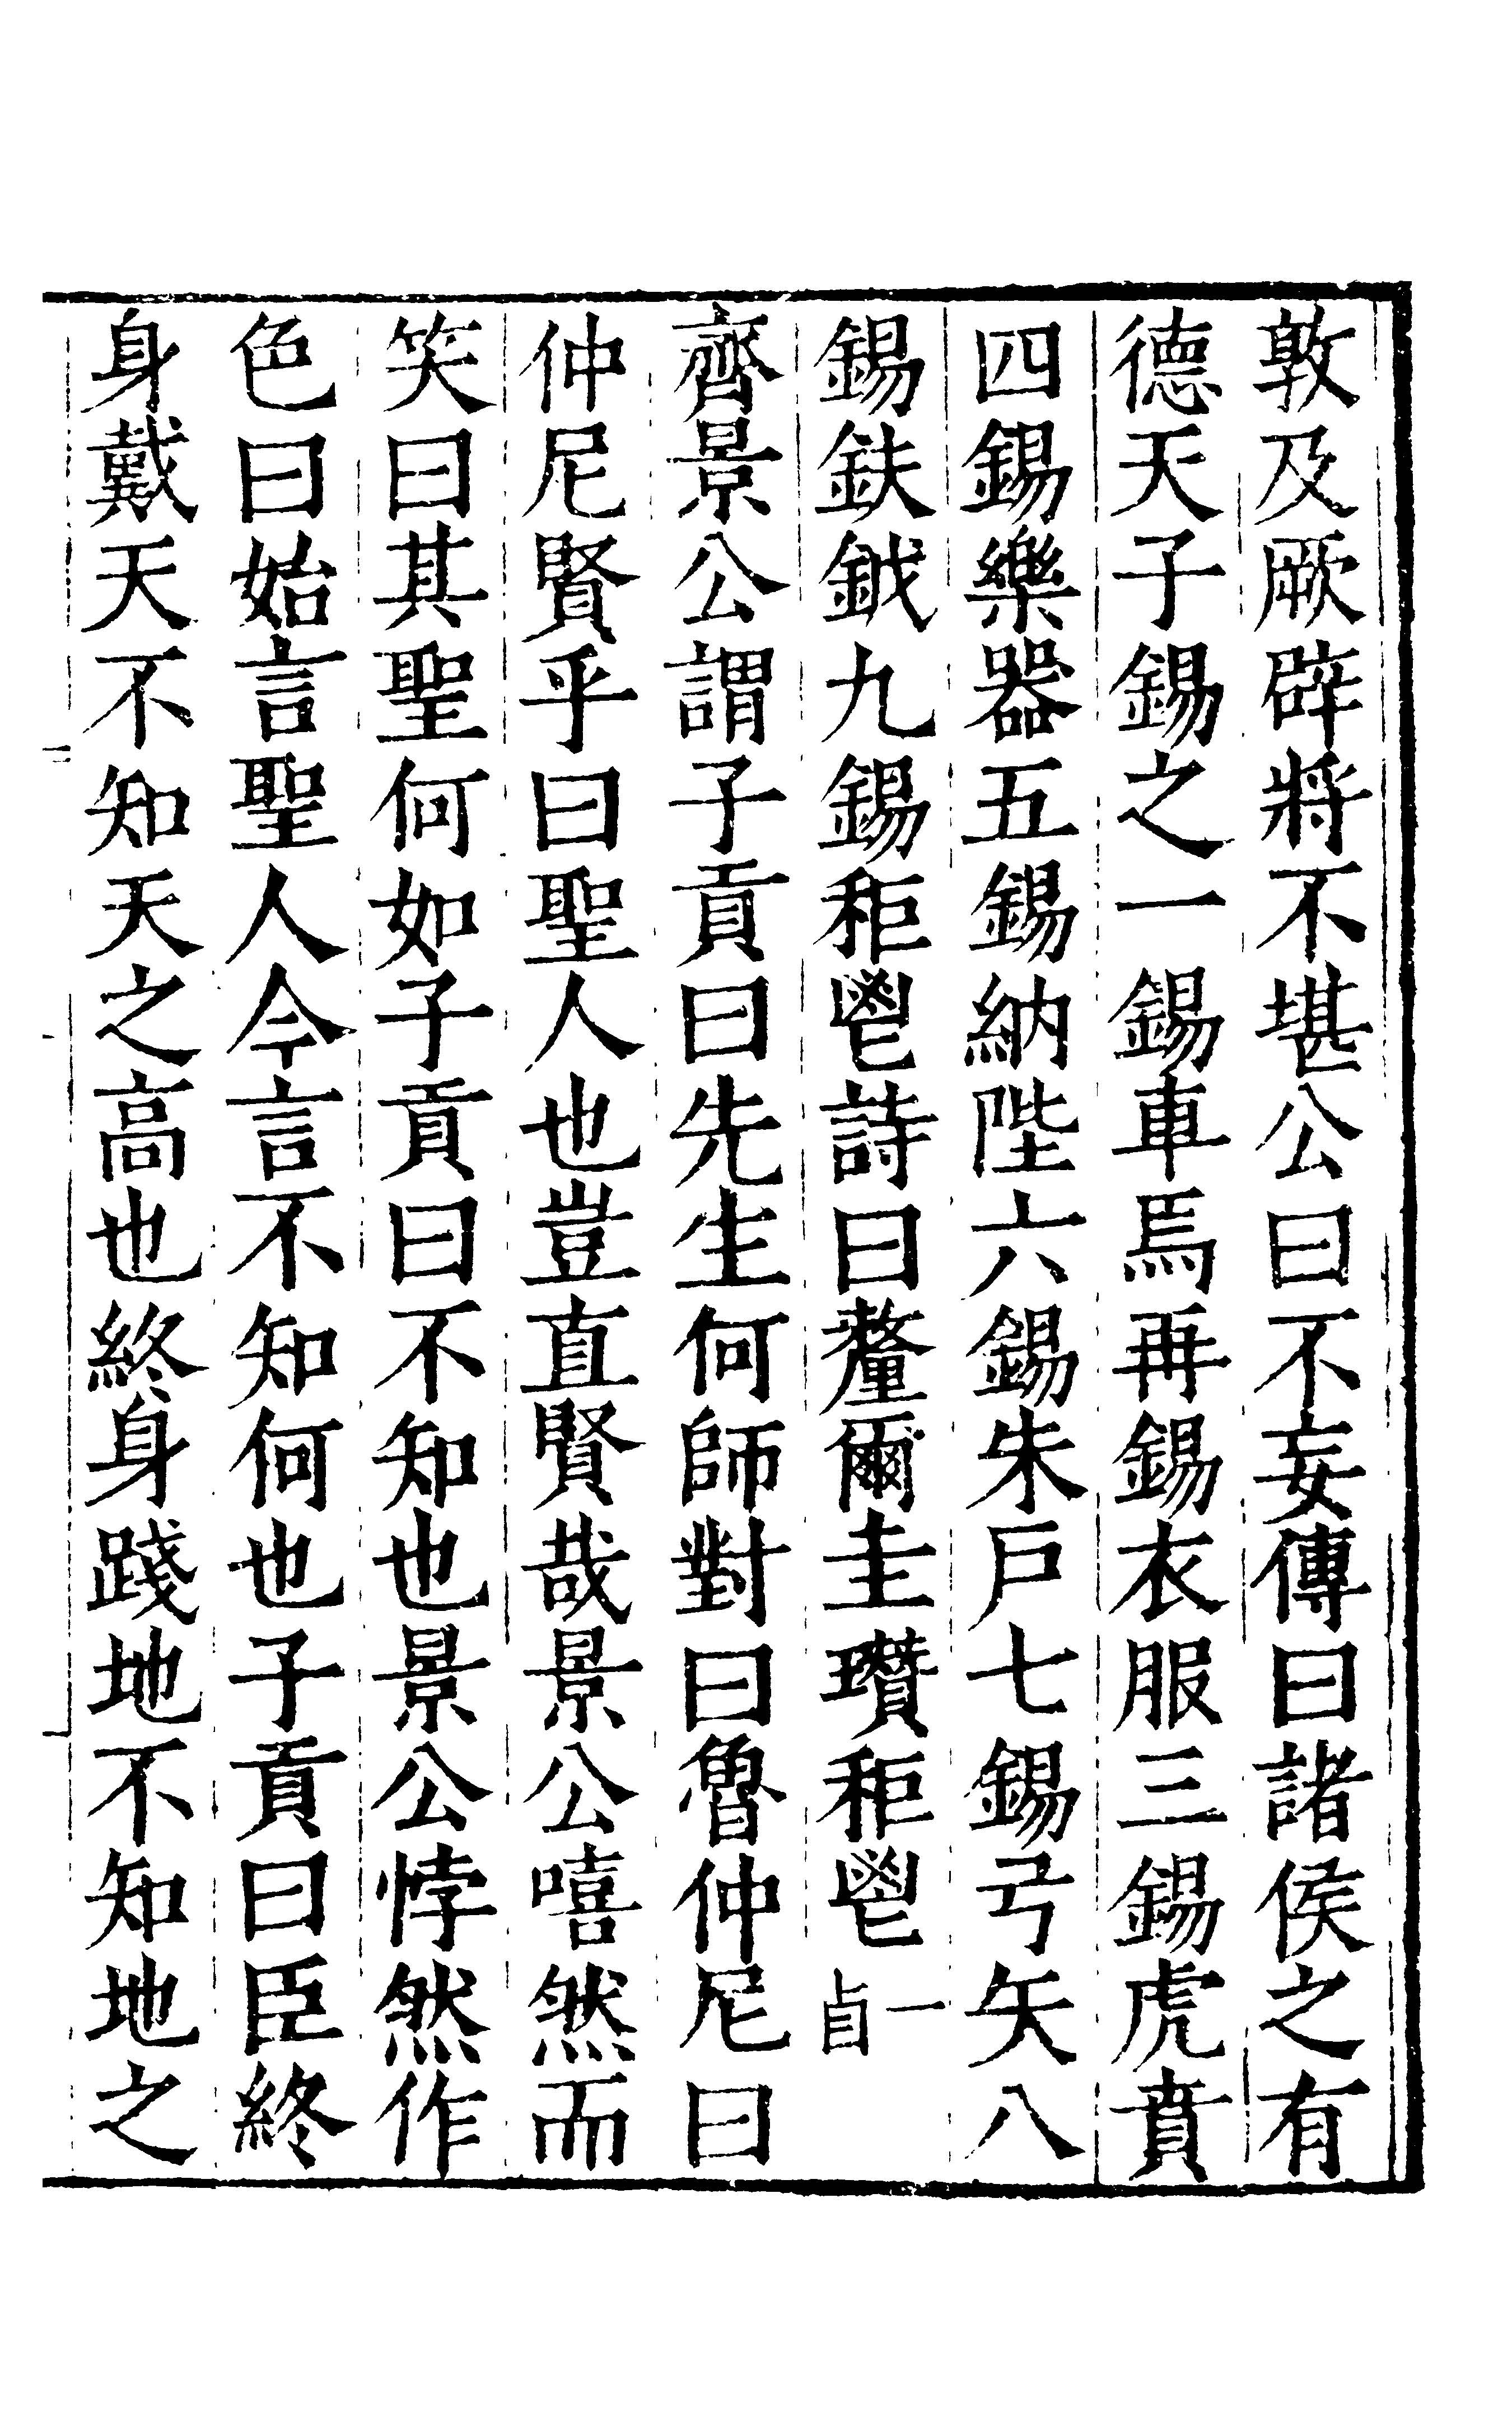 敦及厥辟將不堪公曰不妄傳曰諸侯之有
德天子錫之一錫車焉再錫衣服三錫虎賁
四錫樂器五錫納陛六錫朱戶七錫弓矢八
錫鈇鉞九錫秬鬯詩曰釐爾圭瓚秬鬯一卣
齊景公謂子貢曰先生何師對曰魯仲尼曰
仲尼賢乎曰聖人也豈直賢哉景公嘻然而
笑曰其聖何如子貢曰不知也景公悖然作
色曰始言聖人今言不知何也子貢曰臣終
身戴天不知天之高也終身踐地不知地之